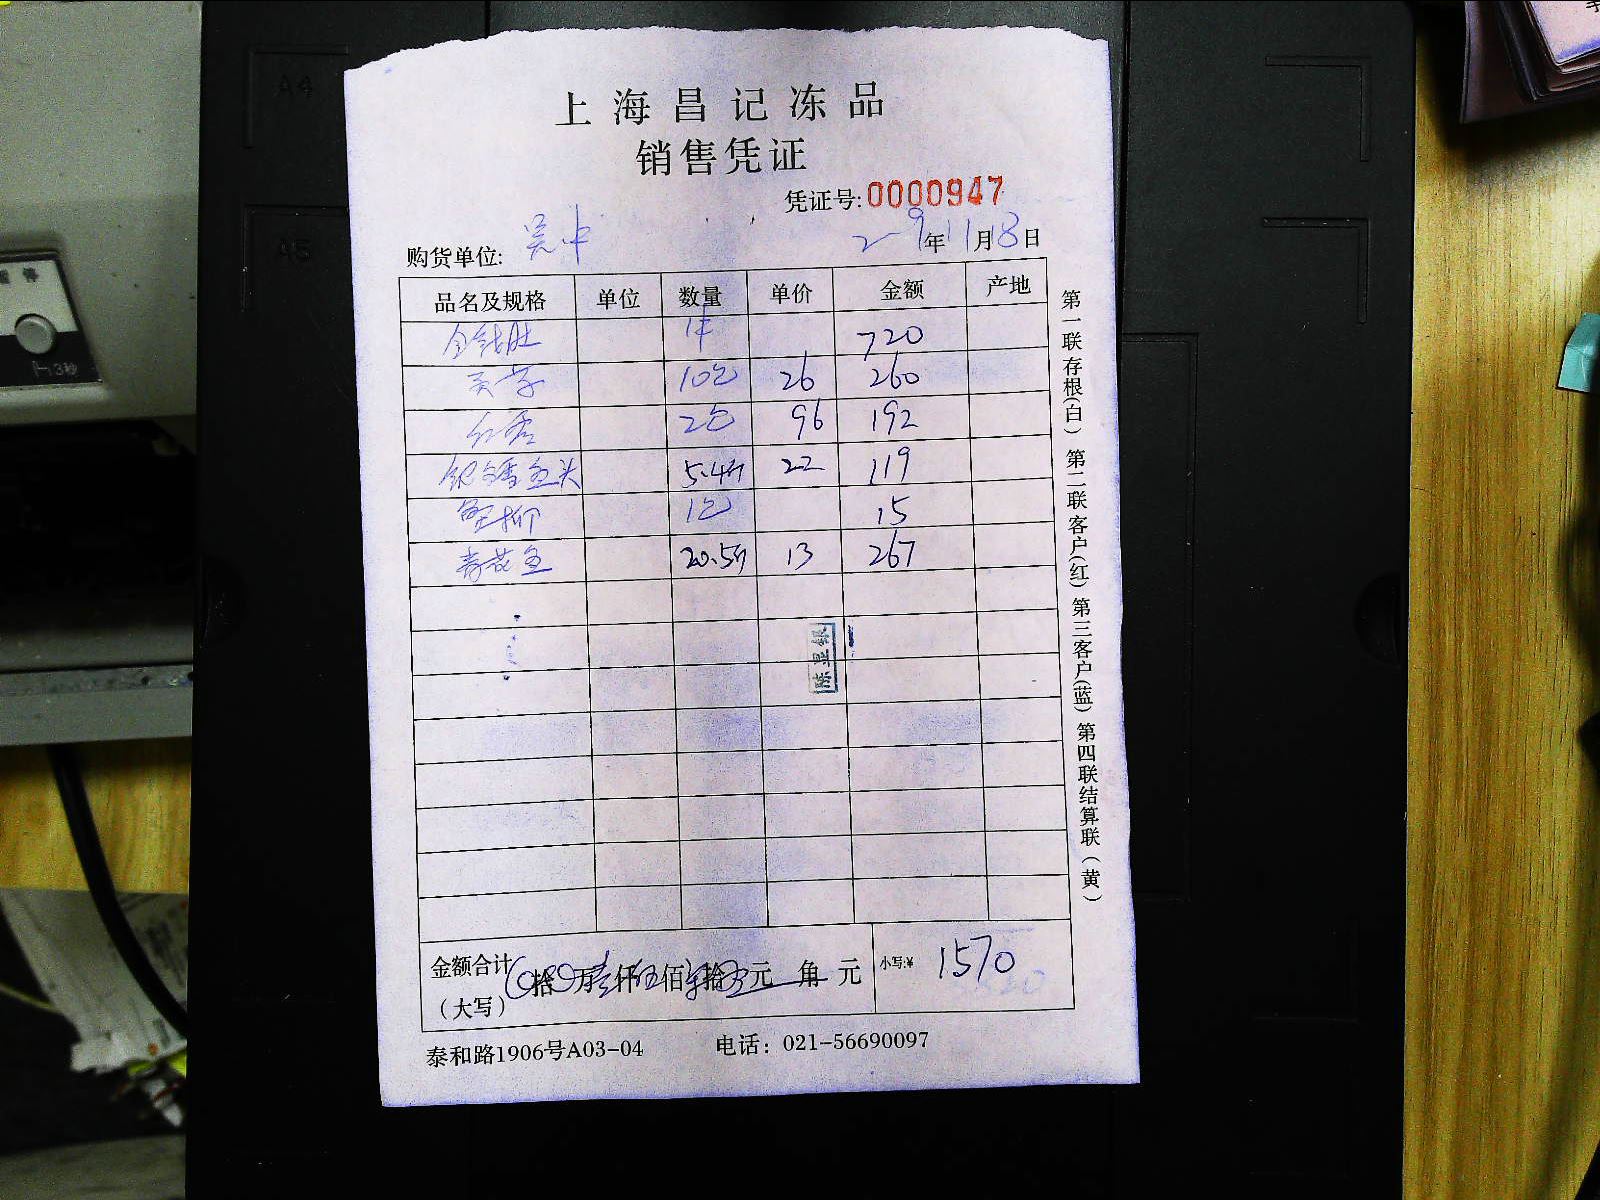 上海昌记冻品
销售凭证
凭证号:0000947
购货单位: 吴中 2 9年11月8日
品名及规格 单位 数量 单价 金额 产地
金钱肚 1件 720
10包 26 260
2包 96 192
银鳕鱼头 5.4斤 22 119
1包 15
青花鱼 20.5斤 13 267
陈显银
金额合计 拾 万 仟 佰 拾 元 角 元 小写:¥ 1570
(大写)
泰和路1906号A03-04 电话: 021-56690097
第一联存根(白) 第二联客户(红) 第三客户(蓝) 第四联结算联(黄)
A4
A5
3秒